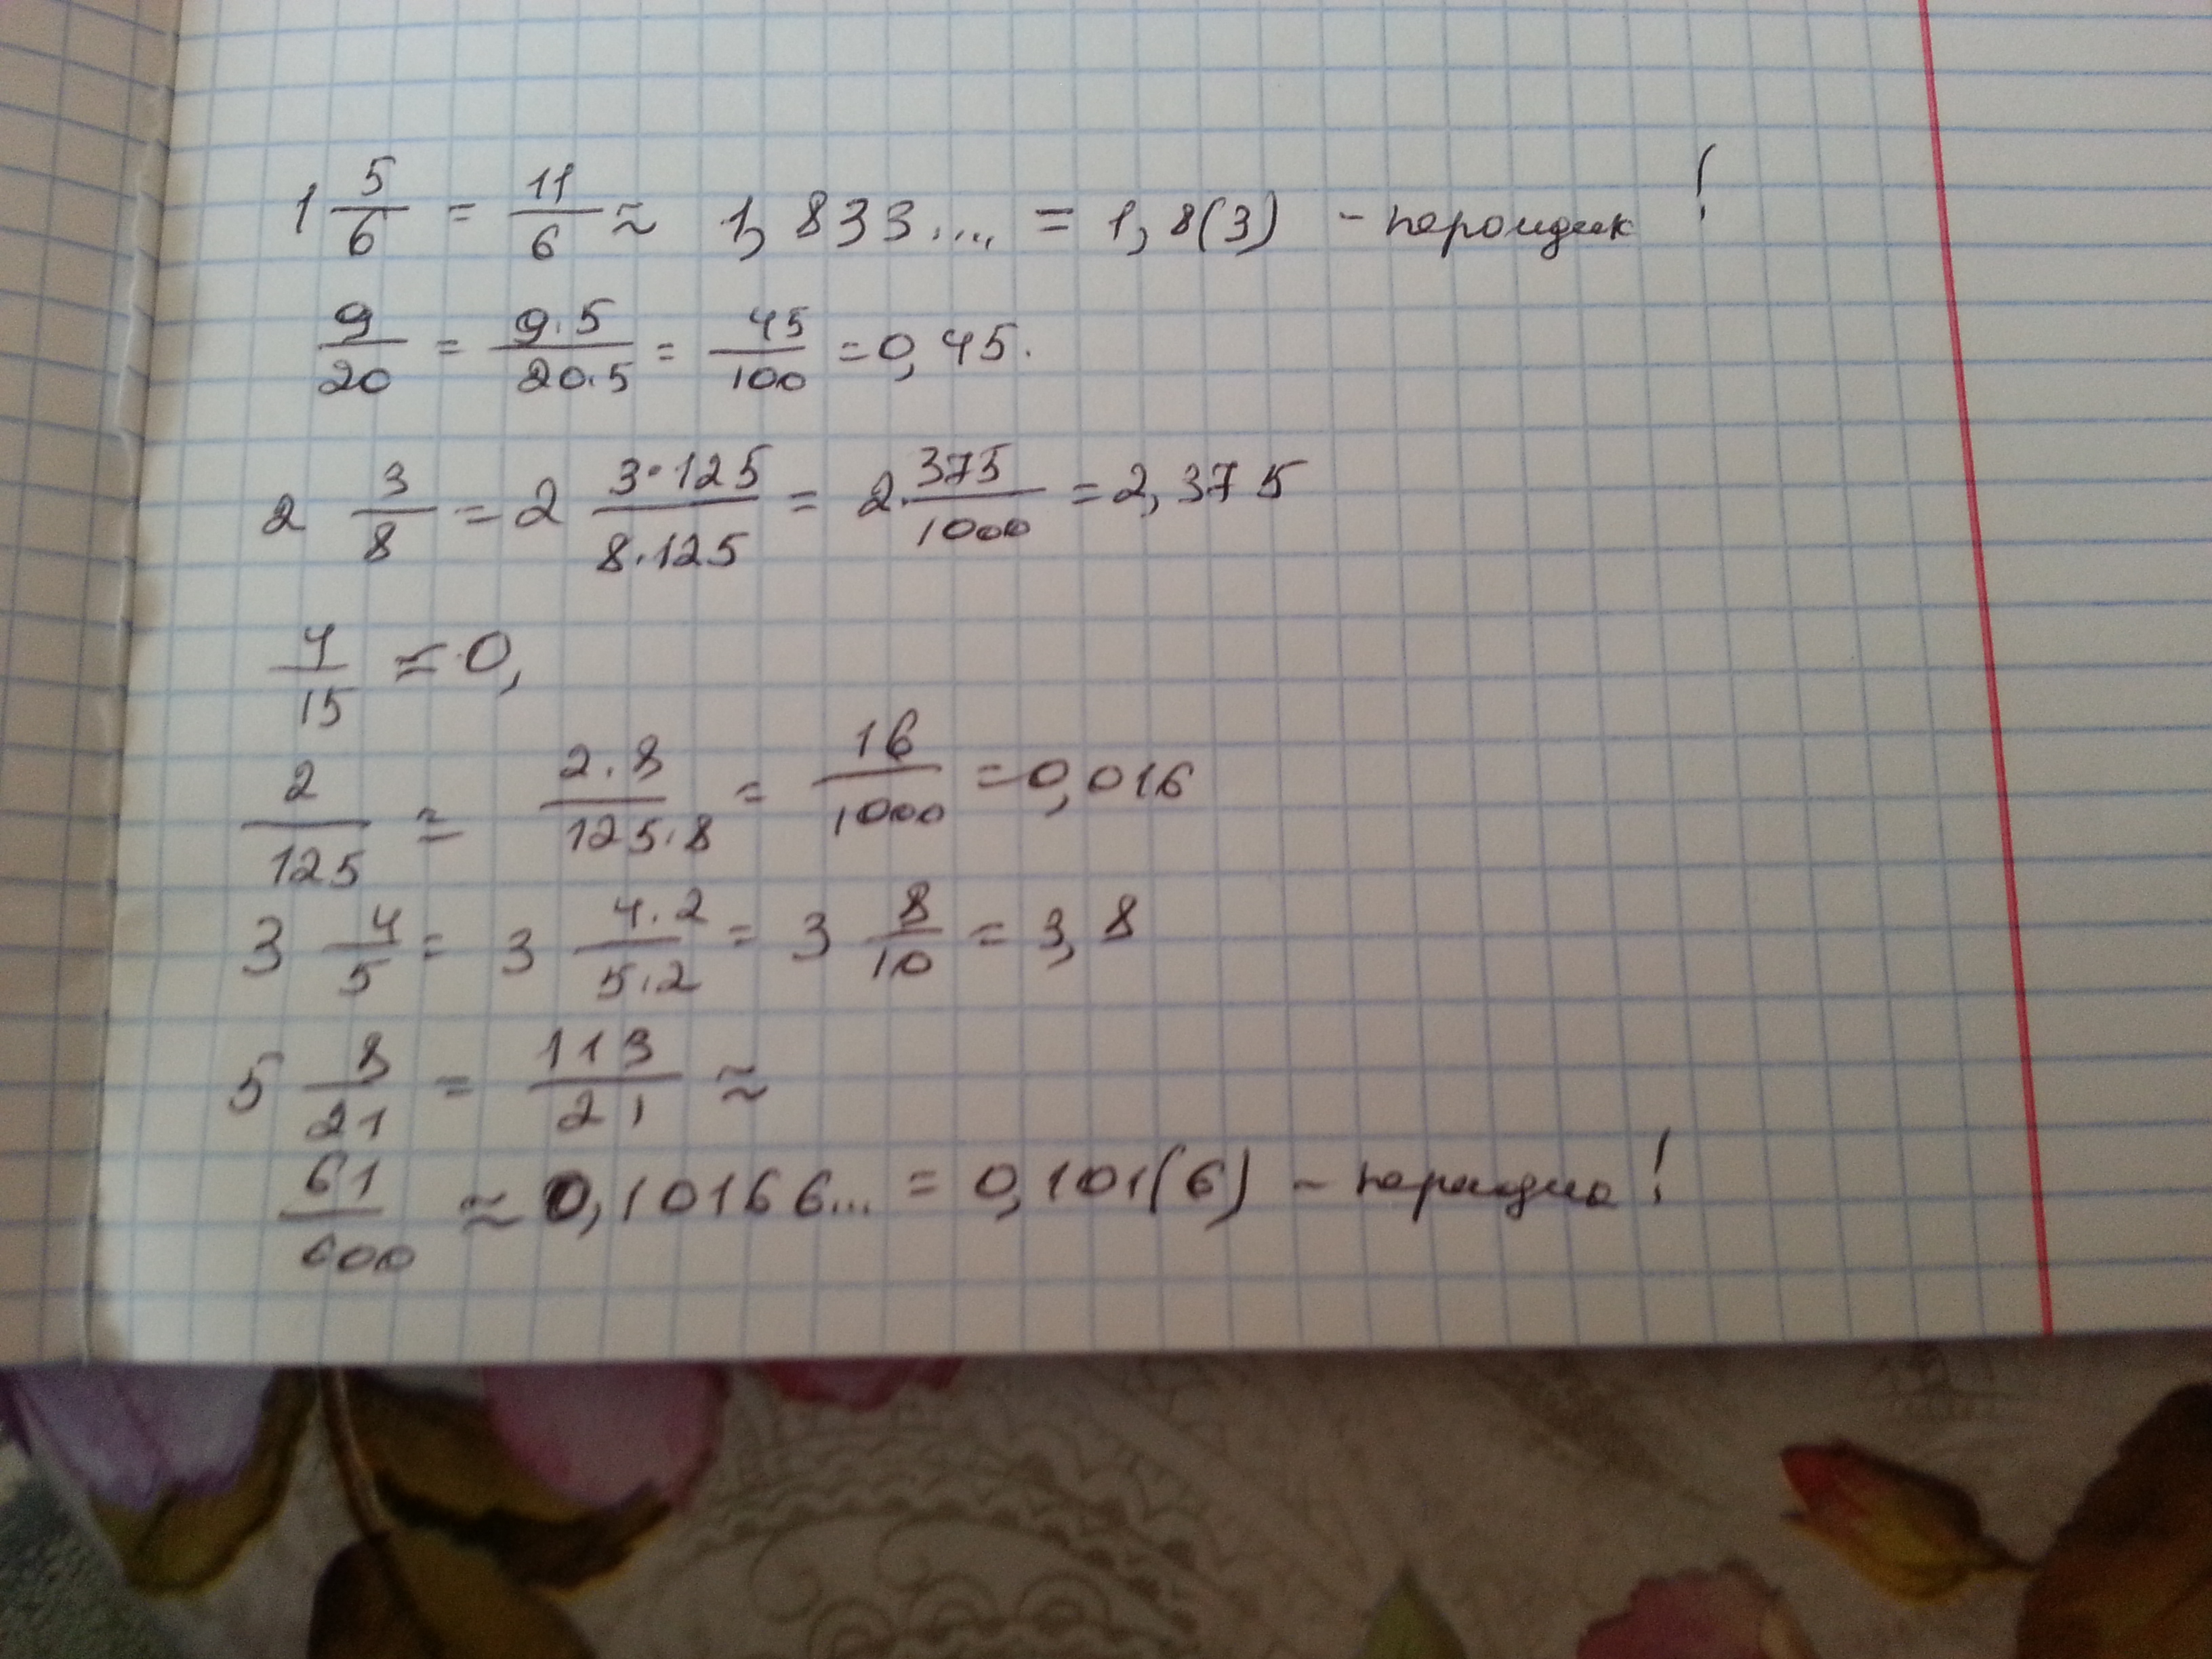 1 5/6 = 11/6 ≈ 1,833.... = 1,8(3) - пероидик !
9/20 = 9·5/20·5 = 45/100 = 0,45.
2 3/8 = 2 3·125/8·125 = 2·375/1000 = 2,375
4/15 ≈ 0,
2/125 = 2·8/125·8 = 16/1000 = 0,016
3 4/5 = 3 4·2/5·2 = 3 8/10 = 3,8
5 8/21 = 113/21 ≈
61/600 ≈ 0,10166... = 0,101(6) -